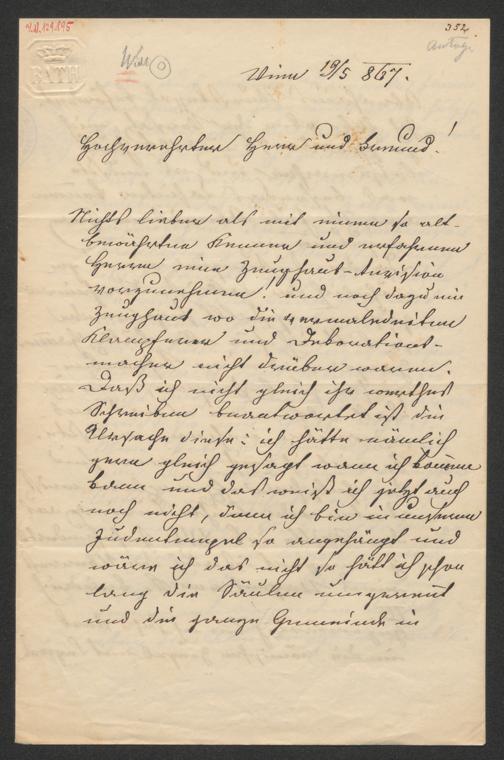 I.N. 129.895
352
Antogr.
BATH
Wien 19/5 867.
Hochverehrter Herr und Freund!
Nichts lieber als mit einem so alt-
bewährten Kenner und erfahrenen
Herrn eine Zeughaus-Revision
vorzunehmen! und noch dazu ein
Zeughaus wo die vermaledeiten
Klampferer und Dekorations-
macher nicht drüber waren.
Daß ich nicht gleich ihr werthes
Schreiben beantwortet ist die
Ursache diese: ich hätte nämlich
gern gleich gesagt wann ich kommen
kann und das weiß ich jetzt auch
noch nicht, denn ich bin in unserem
Judentempel so angehängt und
wäre ich das nicht so hätt ich schon
lang die Säulen umgerennt
und die ganze Gemeinde in